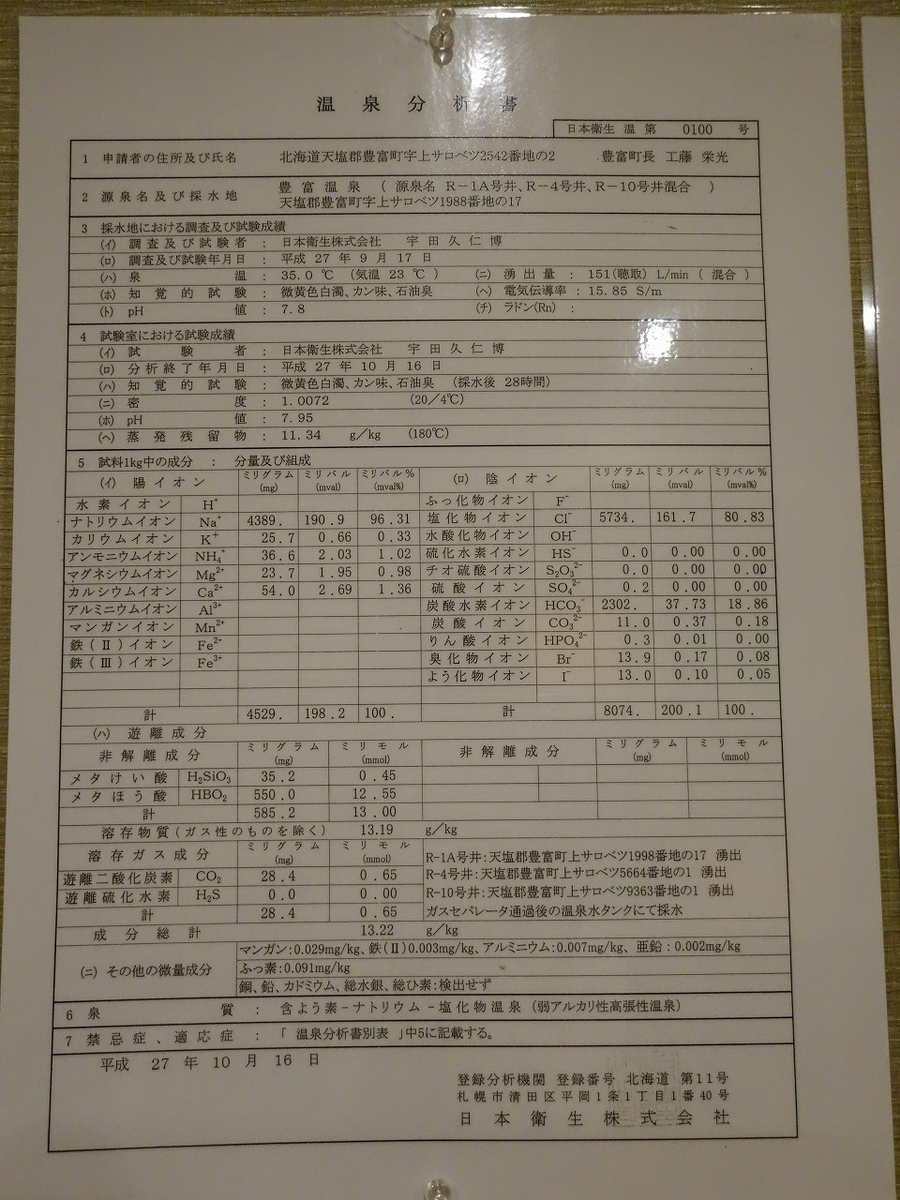 温泉分析書
日本衛生 温 第 0100 号
1 申請者の住所及び氏名 北海道天塩郡豊富町字上サロベツ2542番地の2 豊富町長 工藤 栄光
2 源泉名及び採水地 豊富温泉 ( 源泉名 R-1A号井、R-4号井、R-10号井混合 )
天塩郡豊富町字上サロベツ1988番地の17
3 採水地における調査及び試験成績
(イ) 調査及び試験者 : 日本衛生株式会社 宇田久仁博
(ロ) 調査及試験年月日 : 平成 27 年 9 月 17 日
(ハ) 泉温 : 35.0 ℃ (気温 23 ℃ ) (ニ) 湧出量 : 151(聴取) L/min ( 混合 )
(ホ) 知覚的試験 : 微黄色白濁、カン味、石油臭 (ヘ) 電気伝導率 : 15.85 S/m
(ト) pH値 : 7.8 (チ) ラドン(Rn) :
4 試験室における試験成績
(イ) 試験者 : 日本衛生株式会社 宇田久仁博
(ロ) 分析終了年月日 : 平成 27 年 10 月 16 日
(ハ) 知覚的試験 : 微黄色白濁、カン味、石油臭 (採水後 28時間)
(ニ) 密度 : 1.0072 (20/4℃)
(ホ) pH値 : 7.95
(ヘ) 蒸発残留物 : 11.34 g/kg (180℃)
5 試料1kg中の成分 : 分量及び組成
(イ) 陽イオン ミリグラム(mg) ミリバル(mval) ミリバル%(mval%) (ロ) 陰イオン ミリグラム(mg) ミリバル(mval) ミリバル%(mval%)
水素イオン H⁺ ふっ化物イオン F⁻
ナトリウムイオン Na⁺ 4389. 190.9 96.31 塩化物イオン Cl⁻ 5734. 161.7 80.83
カリウムイオン K⁺ 25.7 0.66 0.33 水酸化物イオン OH⁻
アンモニウムイオン NH₄⁺ 36.6 2.03 1.02 硫化水素イオン HS⁻ 0.0 0.00 0.00
マグネシウムイオン Mg²⁺ 23.7 1.95 0.98 チオ硫酸イオン S₂O₃²⁻ 0.0 0.00 0.00
カルシウムイオン Ca²⁺ 54.0 2.69 1.36 硫酸イオン SO₄²⁻ 0.2 0.00 0.00
アルミニウムイオン Al³⁺ 炭酸水素イオン HCO₃⁻ 2302. 37.73 18.86
マンガンイオン Mn²⁺ 炭酸イオン CO₃²⁻ 11.0 0.37 0.18
鉄(Ⅱ)イオン Fe²⁺ りん酸イオン HPO₄²⁻ 0.3 0.01 0.00
鉄(Ⅲ)イオン Fe³⁺ 臭化物イオン Br⁻ 13.9 0.17 0.08
よう化物イオン I⁻ 13.0 0.10 0.05
計 4529. 198.2 100. 計 8074. 200.1 100.
(ハ) 遊離成分
非解離成分 ミリグラム(mg) ミリモル(mmol) 非解離成分 ミリグラム(mg) ミリモル(mmol)
メタけい酸 H₂SiO₃ 35.2 0.45
メタほう酸 HBO₂ 550.0 12.55
計 585.2 13.00
溶存物質(ガス性のものを除く) 13.19 g/kg
溶存ガス成分 ミリグラム(mg) ミリモル(mmol)
遊離二酸化炭素 CO₂ 28.4 0.65
遊離硫化水素 H₂S 0.0 0.00
計 28.4 0.65
R-1A号井:天塩郡豊富町上サロベツ1998番地の17 湧出
R-4号井:天塩郡豊富町上サロベツ5664番地の1 湧出
R-10号井:天塩郡豊富町上サロベツ9363番地の1 湧出
ガスセパレータ通過後の温泉水タンクにて採水
成分総計 13.22 g/kg
(ニ) その他の微量成分
マンガン:0.029mg/kg、鉄(Ⅱ)0.003mg/kg、アルミニウム:0.007mg/kg、亜鉛:0.002mg/kg
ふっ素:0.091mg/kg
銅、鉛、カドミウム、総水銀、総ひ素:検出せず
6 泉質 : 含よう素-ナトリウム-塩化物温泉 (弱アルカリ性高張性温泉)
7 禁忌症、適応症 : 「 温泉分析書別表 」中5に記載する。
平成 27 年 10 月 16 日
登録分析機関 登録番号 北海道 第11号
札幌市清田区平岡1条1丁目1番40号
日本衛生株式会社